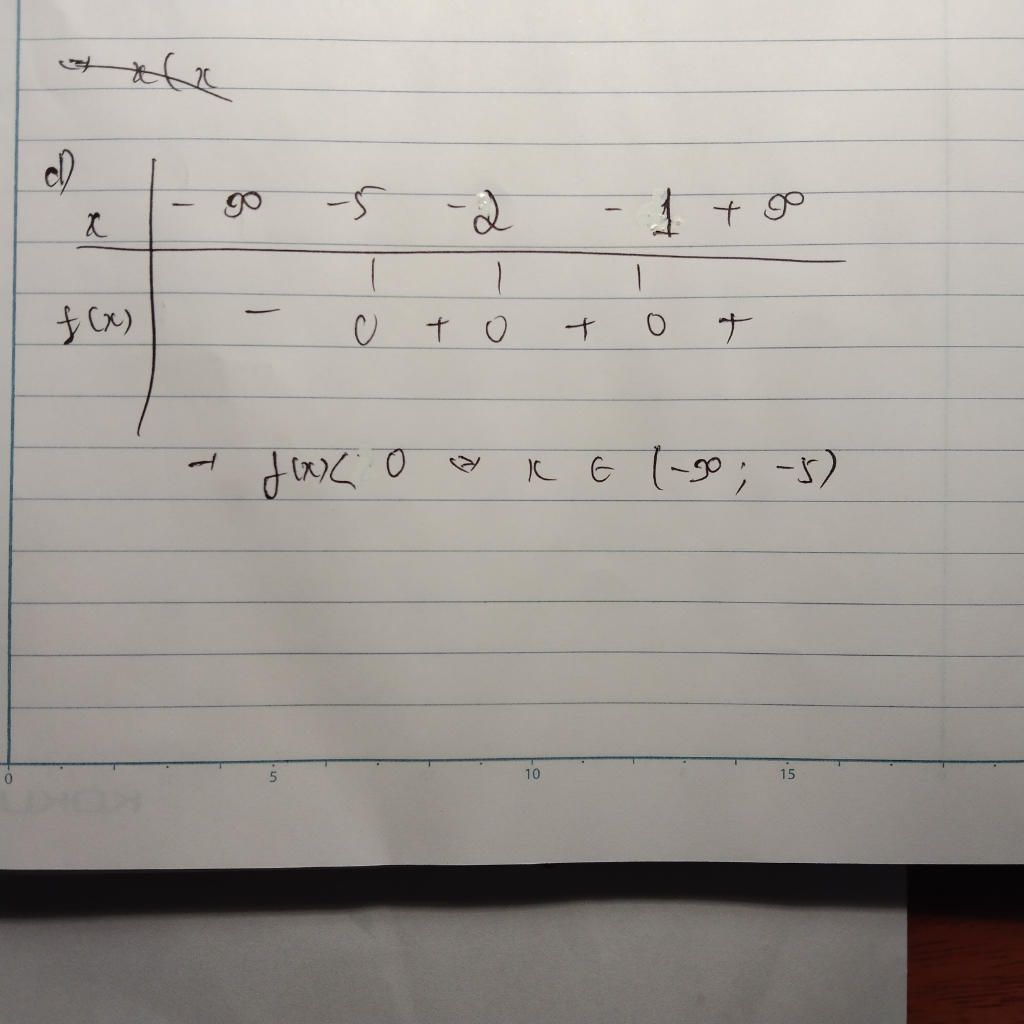 ⇔ x(x
d)
x | -∞ -5 -2 -1 +∞
f(x) | - 0 + 0 + 0 +
→ f(x) < 0 ⇔ x ∈ (-∞; -5)
0 5 10 15